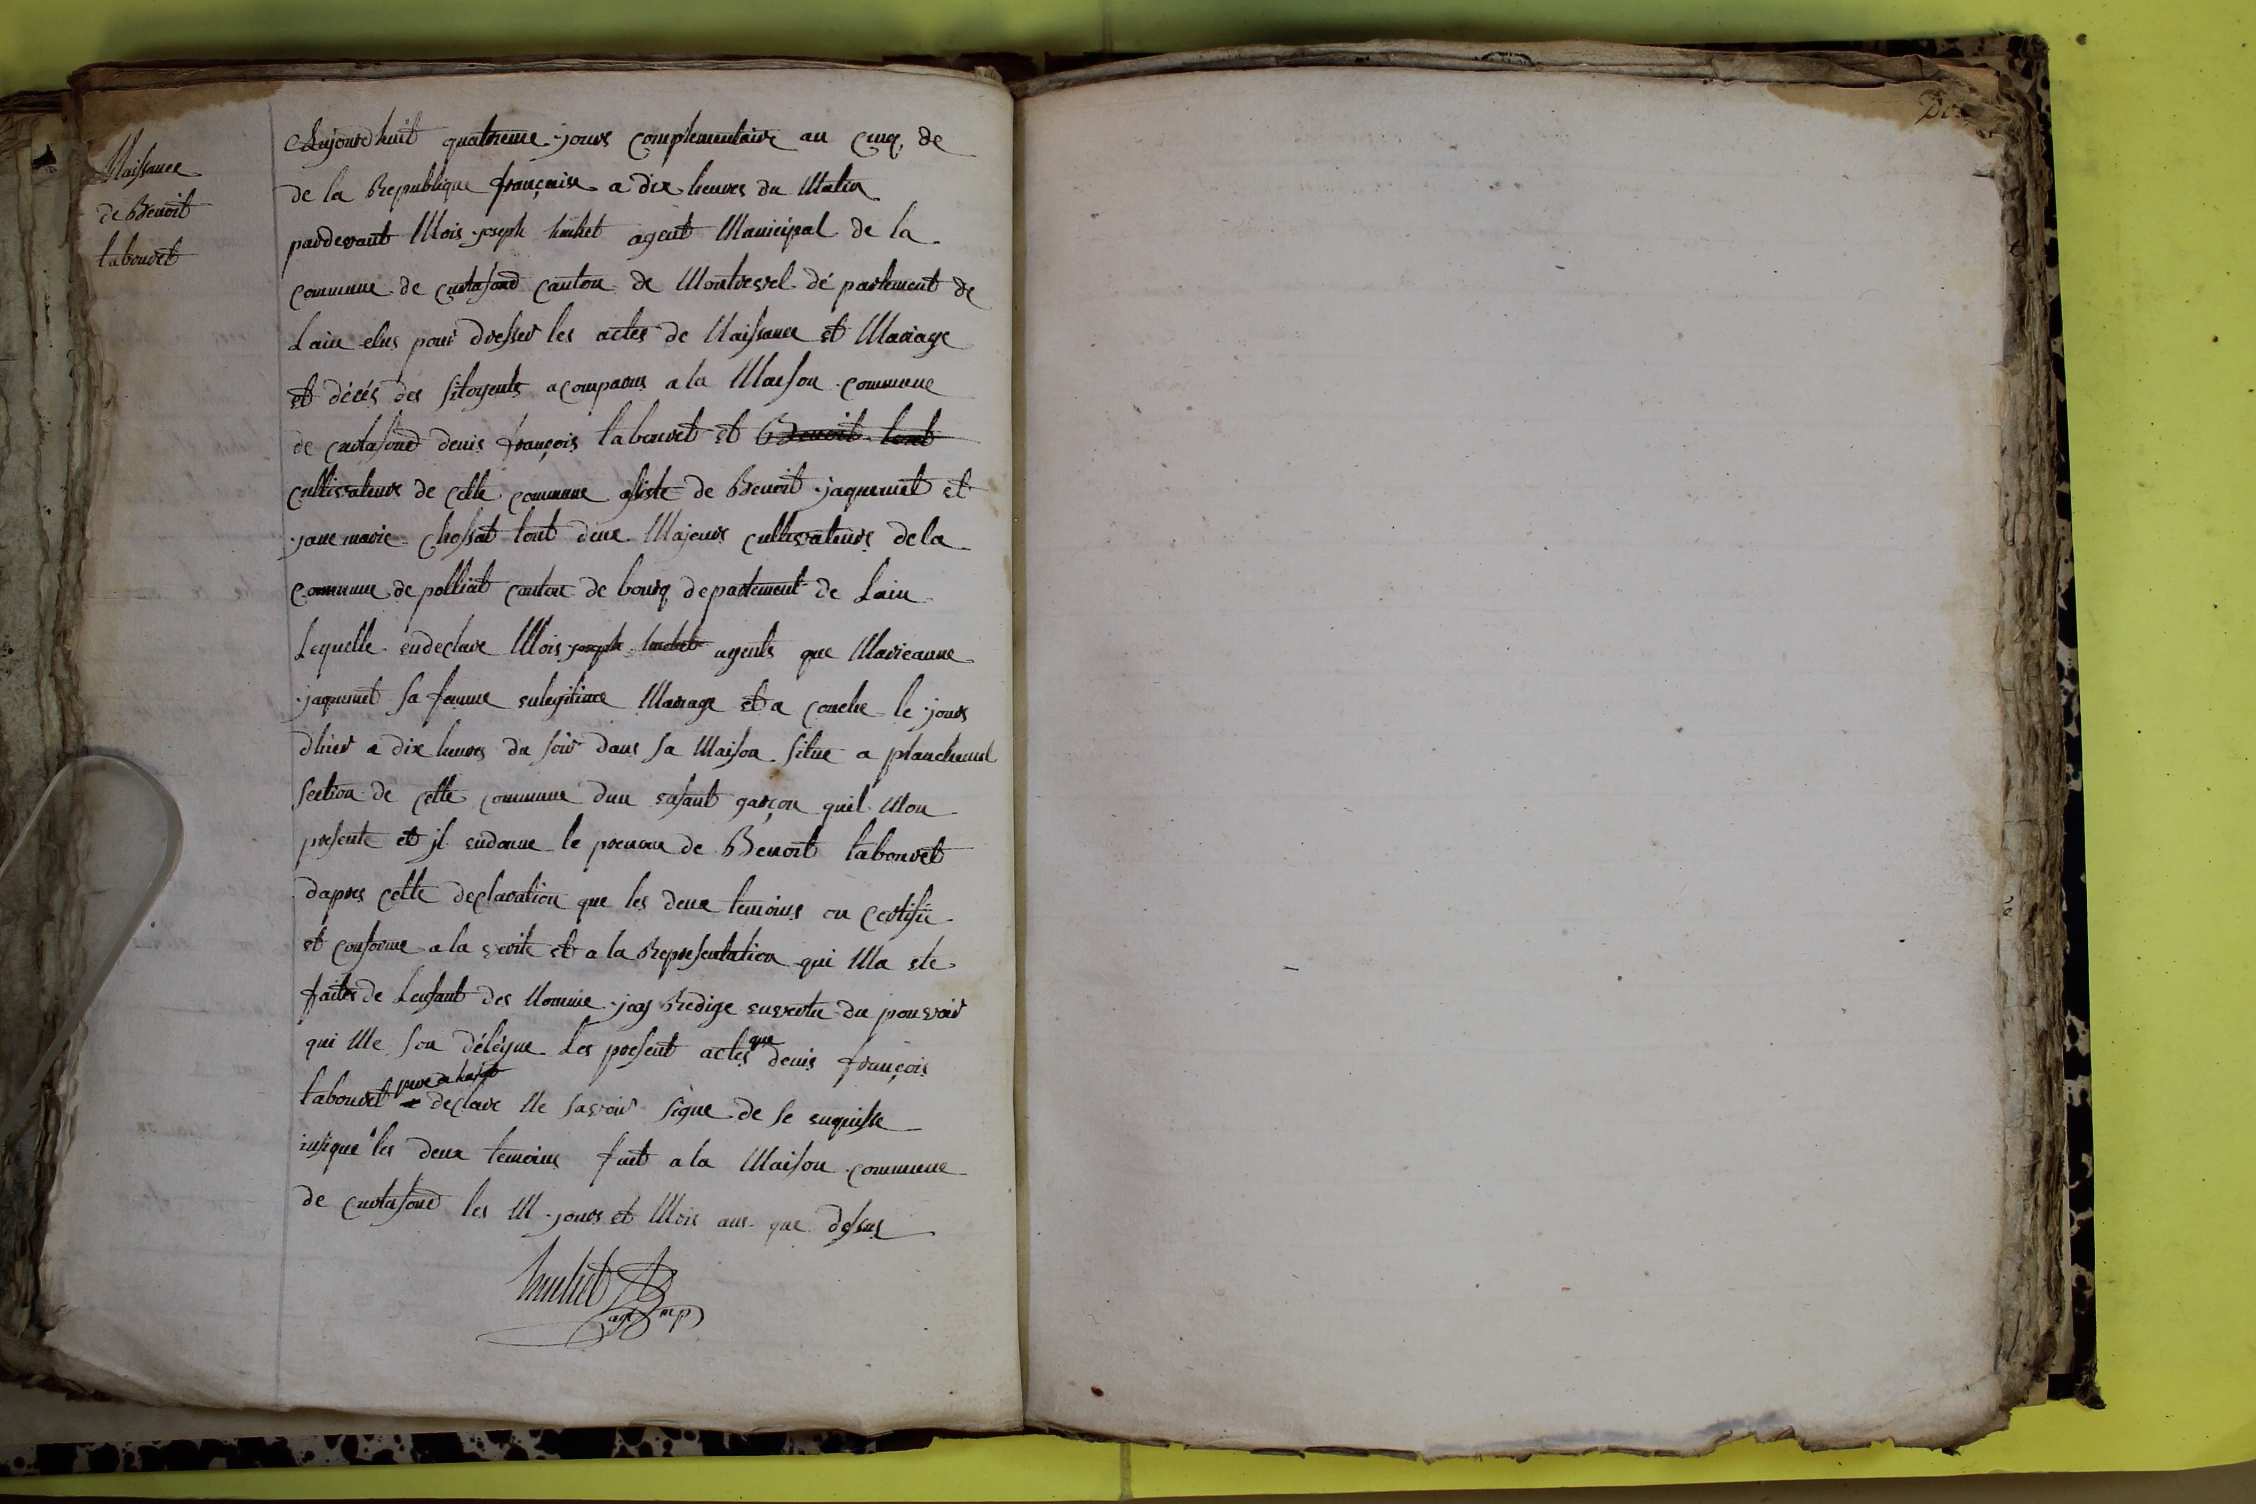 Naissance
de Benoit
tabouret
Aujourdhuit quatrieme jours complementaire an cinq de
de la Republique française a dix heures du Matin
pardevant Mois joseph huchet agent Municipal de la
commune de curtafond canton de Montrevel dé partement de
Lain elus pour dresser les actes de Naissance et Mariage
et décés des sitoyents a comparus a la Maison commune
de curtafond denis françois tabouret et Benoit tout
cultivateurs de cette commune asisté de Benoit jaquemet et
jane marie chossat tout deux Majeurs cultivateurs de la
commune de polliat canton de bourg departement de Lain
Lequelle endeclare Mois joseph huchet agents que Marieanne
jaquemet sa femme enlegitime Mariage et a couche le jours
dhier a dix heures du soir dans sa Maison situe a
section de cette commune dun enfant garçon quil Mon
presente et jl endonne le prenom de Benoit tabouret
dapres cette declaration que les deux temoins on certifie
et conforme a la verite et a la Representation qui Ma ete
faites de Lenfant des Nomme jay Redige envertu du pouvoir
qui Me son délégue Les present actes que denis françois
tabouret declare Ne savoir signe de se enquisse
insique les deux temoins fait a la Maison commune
de curtafond les M jours et Mois ans que desus
huchet
agt mp